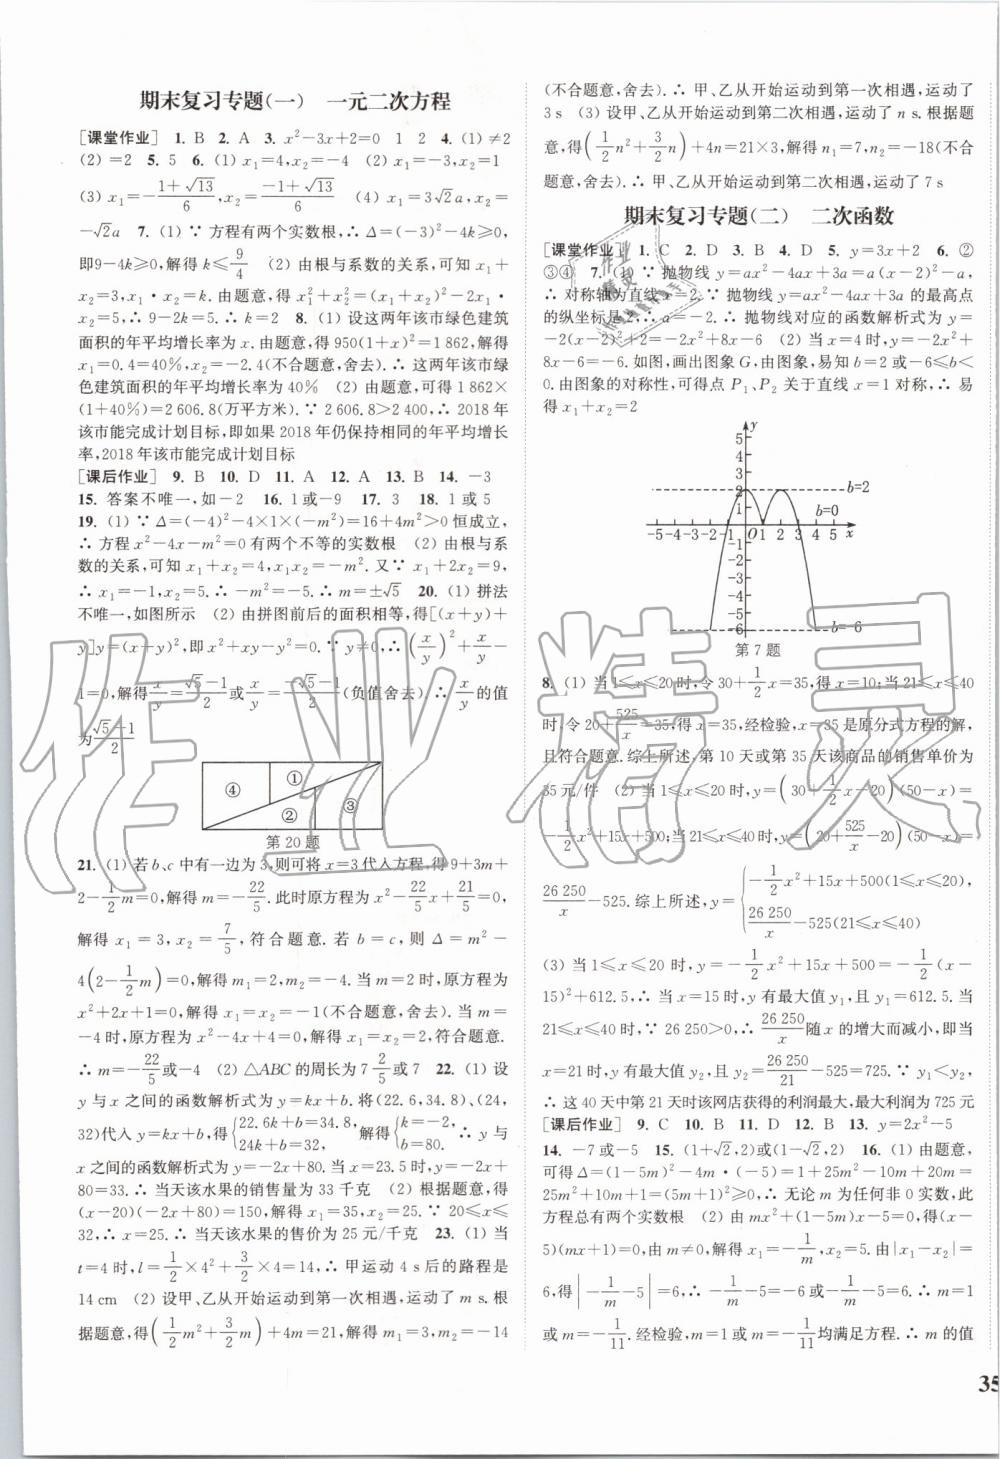 期末复习专题(一)　一元二次方程
[课堂作业]　1. B　2. A　3. x²-3x+2=0　1　2　4. (1) ≠2
(2) =2　5. 5　6. (1) x₁=4,x₂=-4　(2) x₁=3,x₂=1
(3) x₁=-(1+√13)/6,x₂=(-1+√13)/6　(4) x₁=3√2a,x₂=
-√2a　7. (1) ∵ 方程有两个实数根,∴ Δ=(-3)²-4k≥0,
即9-4k≥0,解得k≤9/4　(2) 由根与系数的关系,可知x₁+
x₂=3,x₁·x₂=k.由题意,得x₁²+x₂²=(x₁+x₂)²-2x₁·
x₂=5,∴ 9-2k=5.∴ k=2　8. (1) 设这两年该市绿色建筑
面积的年平均增长率为x.由题意,得950(1+x)²=1 862,解得
x₁=0.4=40%,x₂=-2.4(不合题意,舍去).∴ 这两年该市绿
色建筑面积的年平均增长率为40%　(2) 由题意,可得1 862×
(1+40%)=2 606.8(万平方米).∵ 2 606.8>2 400,∴ 2018年
该市能完成计划目标,即如果2018年仍保持相同的年平均增长
率,2018年该市能完成计划目标
[课后作业]　9. B　10. D　11. A　12. A　13. B　14. -3
15. 答案不唯一,如-2　16. 1或-9　17. 3　18. 1或5
19. (1) ∵ Δ=(-4)²-4×1×(-m²)=16+4m²>0恒成立,
∴ 方程x²-4x-m²=0有两个不等的实数根　(2) 由根与系
数的关系,可知x₁+x₂=4,x₁x₂=-m².又∵ x₁+2x₂=9,
∴ x₁=-1,x₂=5.∴ -m²=-5.∴ m=±√5　20. (1) 拼法
不唯一,如图所示　(2) 由拼图前后的面积相等,得[(x+y)+
y]y=(x+y)²,即x²+xy-y²=0.∵ y≠0,∴ (x/y)²+x/y-
1=0,解得x/y=(√5-1)/2或x/y=(-√5-1)/2(负值舍去).∴ x/y的值
为(√5-1)/2
④
①
②
③
第20题
21. (1) 若b、c中有一边为3,则可将x=3代入方程,得9+3m+
2-1/2m=0,解得m=-22/5.此时原方程为x²-22/5x+21/5=0,
解得x₁=3,x₂=7/5,符合题意.若b=c,则Δ=m²-
4(2-1/2m)=0,解得m₁=2,m₂=-4.当m=2时,原方程为
x²+2x+1=0,解得x₁=x₂=-1(不合题意,舍去).当m=
-4时,原方程为x²-4x+4=0,解得x₁=x₂=2,符合题意.
∴ m=-22/5或-4　(2) △ABC的周长为7 2/5或7　22. (1) 设
y与x之间的函数解析式为y=kx+b.将(22.6,34.8)、(24,
32)代入y=kx+b,得{22.6k+b=34.8, 24k+b=32,解得{k=-2, b=80.∴ y与
x之间的函数解析式为y=-2x+80.当x=23.5时,y=-2x+
80=33.∴ 当天该水果的销售量为33千克　(2) 根据题意,得
(x-20)(-2x+80)=150,解得x₁=35,x₂=25.∵ 20≤x≤
32,∴ x=25.∴ 当天该水果的售价为25元/千克　23. (1) 当
t=4时,l=1/2×4²+3/2×4=14,∴ 甲运动4 s后的路程是
14 cm　(2) 设甲、乙从开始运动到第一次相遇,运动了m s.根
据题意,得(1/2m²+3/2m)+4m=21,解得m₁=3,m₂=-14
(不合题意,舍去).∴ 甲、乙从开始运动到第一次相遇,运动了
3 s　(3) 设甲、乙从开始运动到第二次相遇,运动了n s.根据题
意,得(1/2n²+3/2n)+4n=21×3,解得n₁=7,n₂=-18(不合
题意,舍去).∴ 甲、乙从开始运动到第二次相遇,运动了7 s
期末复习专题(二)　二次函数
[课堂作业]　1. C　2. D　3. B　4. D　5. y=3x+2　6. ②
③④　7. (1) ∵ 抛物线y=ax²-4ax+3a=a(x-2)²-a,
∴ 对称轴为直线x=2.∵ 抛物线y=ax²-4ax+3a的最高点
的纵坐标是2,∴ a=-2.∴ 抛物线对应的函数解析式为y=
-2(x-2)²+2=-2x²+8x-6　(2) 当x=4时,y=-2x²+
8x-6=-6.如图,画出图象G,由图象,易知b=2或-6≤b<
0.由图象的对称性,可得点P₁、P₂关于直线x=1对称,∴ 易
得x₁+x₂=2
y
5
4
3
2
1
b=2
b=0
-5 -4 -3 -2 -1 O 1 2 3 4 5 x
-1
-2
-3
-4
-5
-6
b=-6
第7题
8. (1) 当1≤x≤20时,令30+1/2x=35,得x=10;当21≤x≤40
时,令20+525/x=35,得x=35,经检验,x=35是原分式方程的解,
且符合题意.综上所述,第10天或第35天该商品的销售单价为
35元/件　(2) 当1≤x≤20时,y=(30+1/2x-20)(50-x)=
-1/2x²+15x+500;当21≤x≤40时,y=(20+525/x-20)(50-x)=
26 250/x-525.综上所述,y={-1/2x²+15x+500(1≤x≤20), 26 250/x-525(21≤x≤40)
(3) 当1≤x≤20时,y=-1/2x²+15x+500=-1/2(x-
15)²+612.5,∴ 当x=15时,y有最大值y₁,且y₁=612.5.当
21≤x≤40时,∵ 26 250>0,∴ 26 250/x随x的增大而减小,即当
x=21时,y有最大值y₂,且y₂=26 250/21-525=725.∵ y₁<y₂,
∴ 这40天中第21天时该网店获得的利润最大,最大利润为725元
[课后作业]　9. C　10. B　11. D　12. B　13. y=2x²-5
14. -7或-5　15. (1+√2,2)或(1-√2,2)　16. (1) 由题意,
可得Δ=(1-5m)²-4m·(-5)=1+25m²-10m+20m=
25m²+10m+1=(5m+1)²≥0,∴ 无论m为任何非0实数,此
方程总有两个实数根　(2) 由mx²+(1-5m)x-5=0,得(x-
5)(mx+1)=0.由m≠0,解得x₁=-1/m,x₂=5.由|x₁-x₂|=
6,得|-1/m-5|=6,∴ -1/m-5=-6或-1/m-5=6,解得m=1
或m=-1/11.经检验,m=1或m=-1/11均满足方程.∴ m的值
35
作业精灵